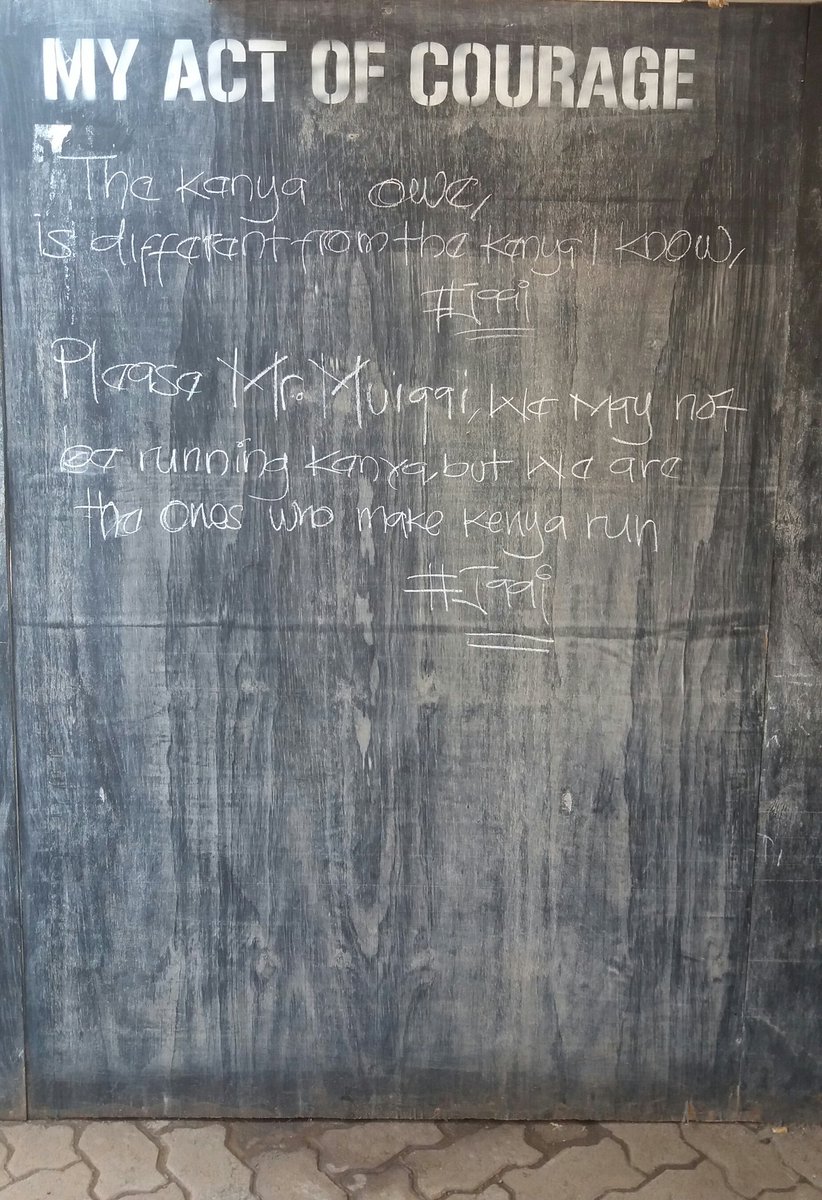 MY ACT OF COURAGE
The Kenya I owe,
is different from the Kenya I know,
#Jaai
Please Mr. Muigai, We May not
be running Kenya, but We are
the ones who make Kenya run
#Jaai